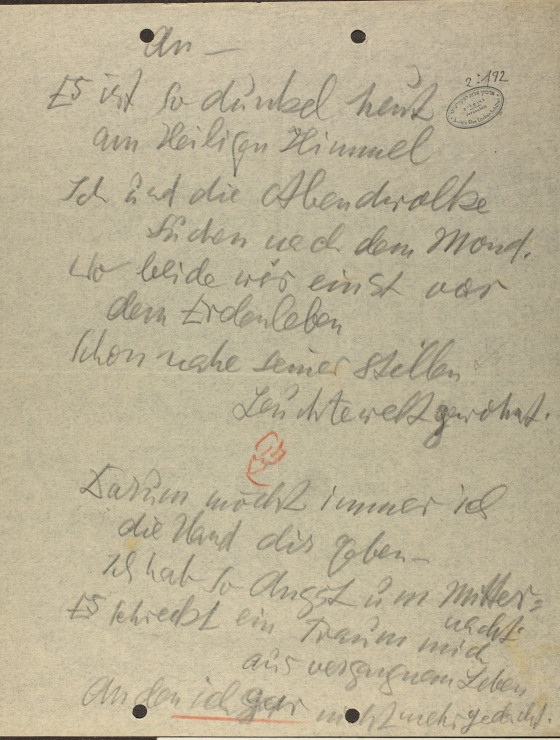 An —
2:192
Es ist so dunkel heut
am Heiligen Himmel
Ich und die Abendwolke
suchen nach dem Mond.
Wo beide wir einst vor
dem Erdenleben
Schon nahe seiner stillen
Leuchtewelt gewohnt.
Darum möcht immer ich
die Hand dir geben —
Ich hab so Angst um Mitter=
nacht.
Es schreckt ein Traum mich
aus vergangnem Leben
An den ich gar nicht mehr gedacht.